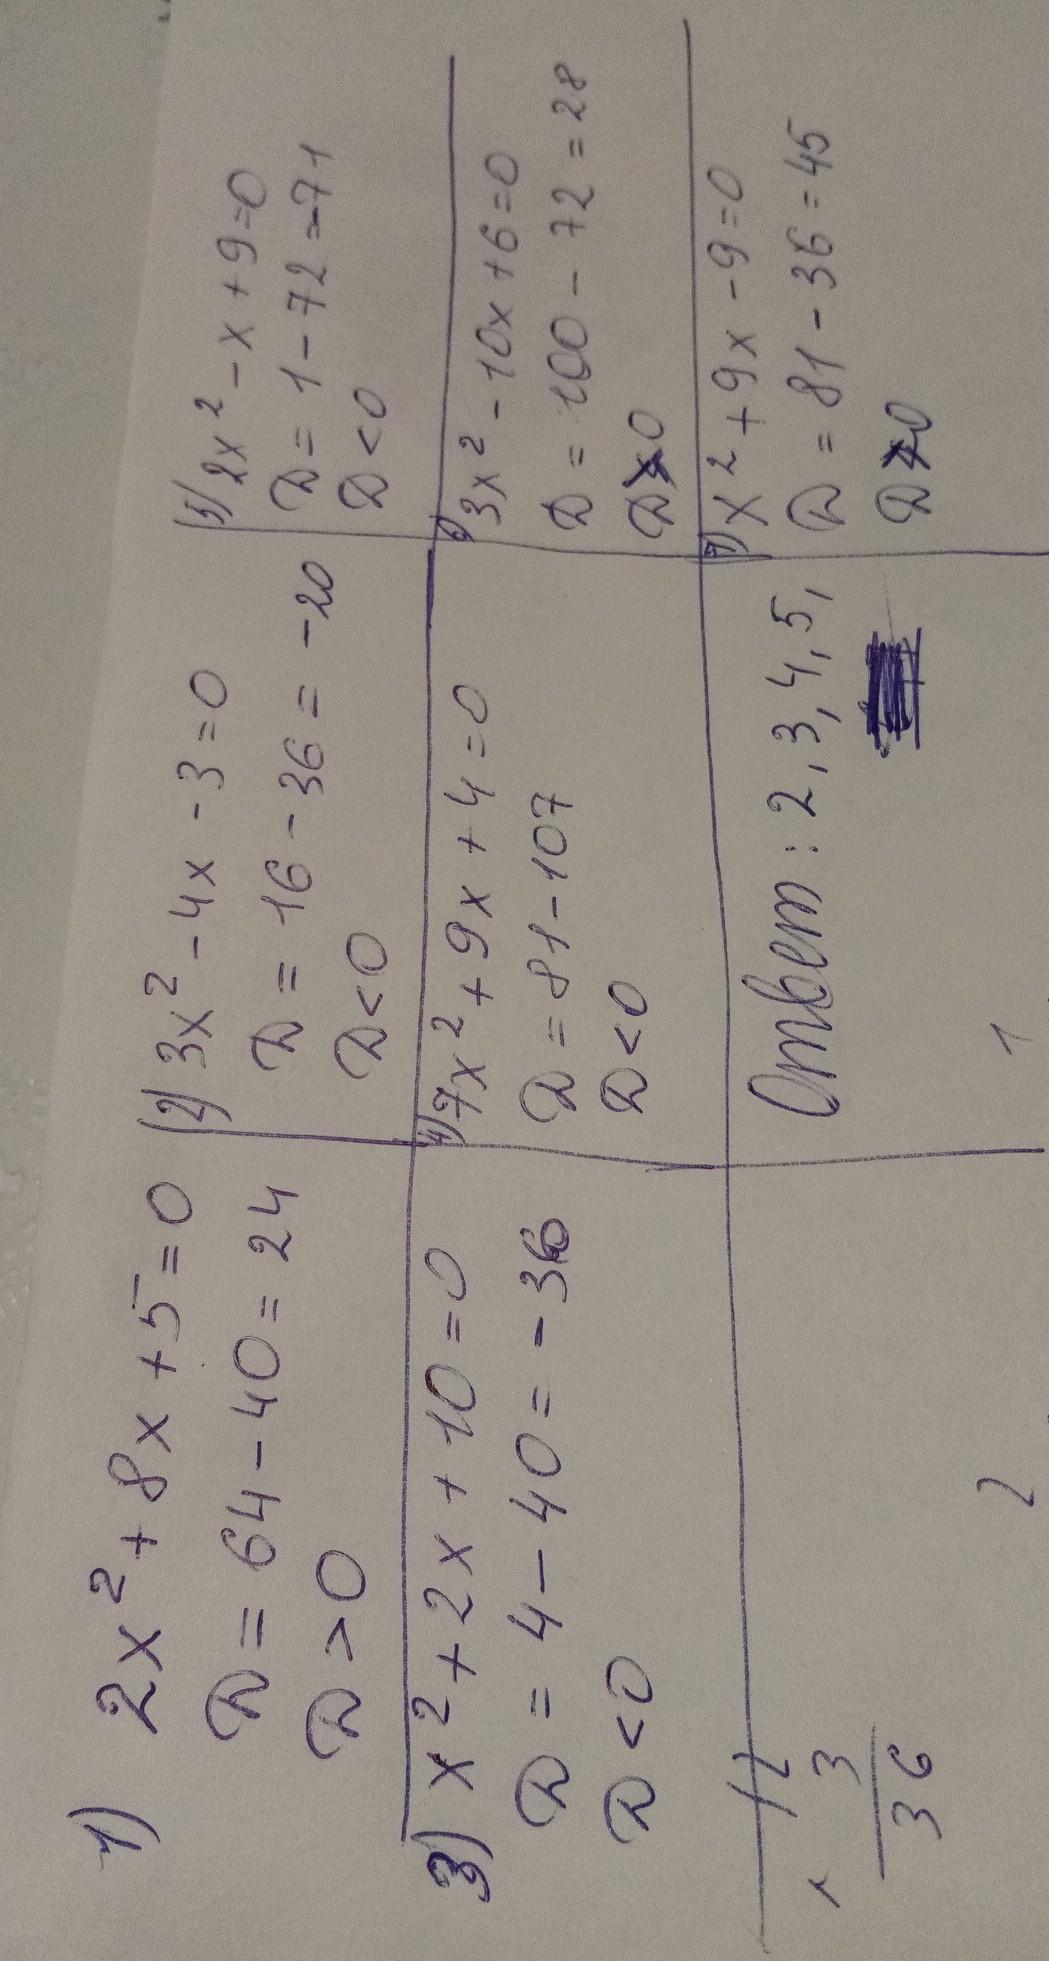 1) 2x² + 8x + 5 = 0
D = 64 - 40 = 24
D > 0
2) 3x² - 4x - 3 = 0
D = 16 - 36 = -20
D < 0
5) 2x² - x + 9 = 0
D = 1 - 72 = -71
D < 0
3) x² + 2x + 10 = 0
D = 4 - 40 = -36
D < 0
4) 7x² + 9x + 4 = 0
D = 81 - 107
D < 0
6) 3x² - 10x + 6 = 0
D = 100 - 72 = 28
D > 0
7) x² + 9x - 9 = 0
D = 81 - 36 = 45
D > 0
Ответ: 2, 3, 4, 5,
12
× 3
36
2
1